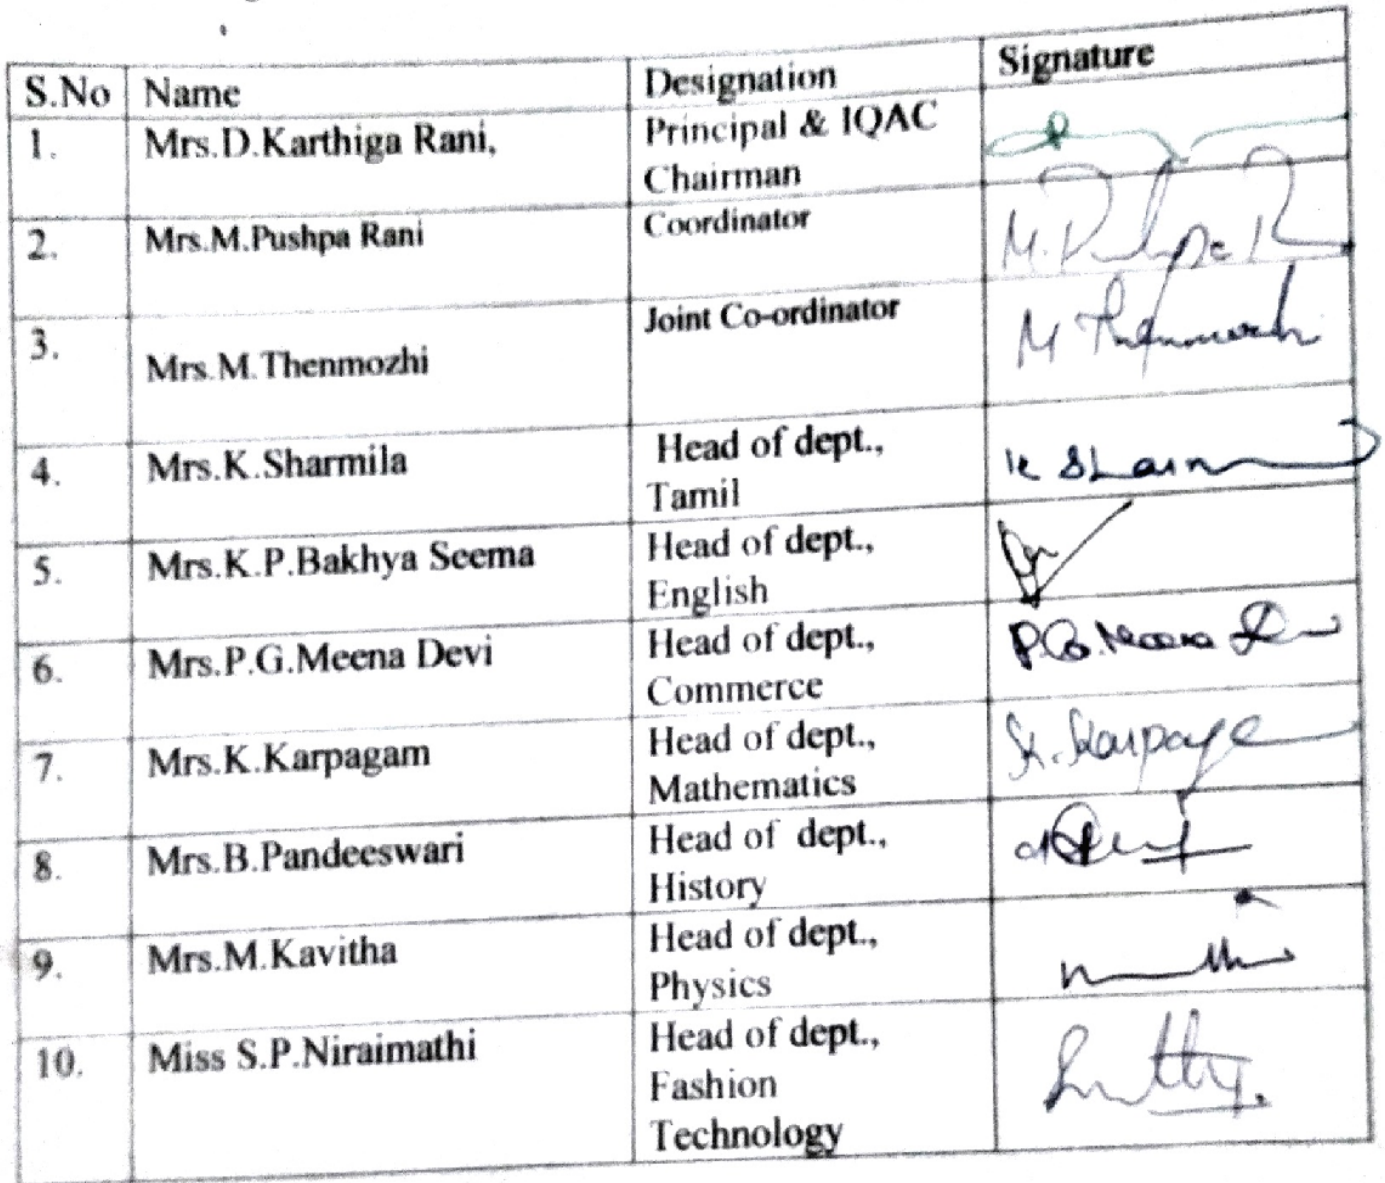 S.No Name Designation Signature
1. Mrs.D.Karthiga Rani, Principal & IQAC
Chairman
2. Mrs.M.Pushpa Rani Coordinator M. Pushpa R
3. Mrs.M.Thenmozhi Joint Co-ordinator M Thenmozhi
4. Mrs.K.Sharmila Head of dept., K Sharm
Tamil
5. Mrs.K.P.Bakhya Seema Head of dept.,
English
6. Mrs.P.G.Meena Devi Head of dept., P.G.Meena De
Commerce
7. Mrs.K.Karpagam Head of dept., K. Karpaga
Mathematics
8. Mrs.B.Pandeeswari Head of dept.,
History
9. Mrs.M.Kavitha Head of dept.,
Physics
10. Miss S.P.Niraimathi Head of dept.,
Fashion
Technology